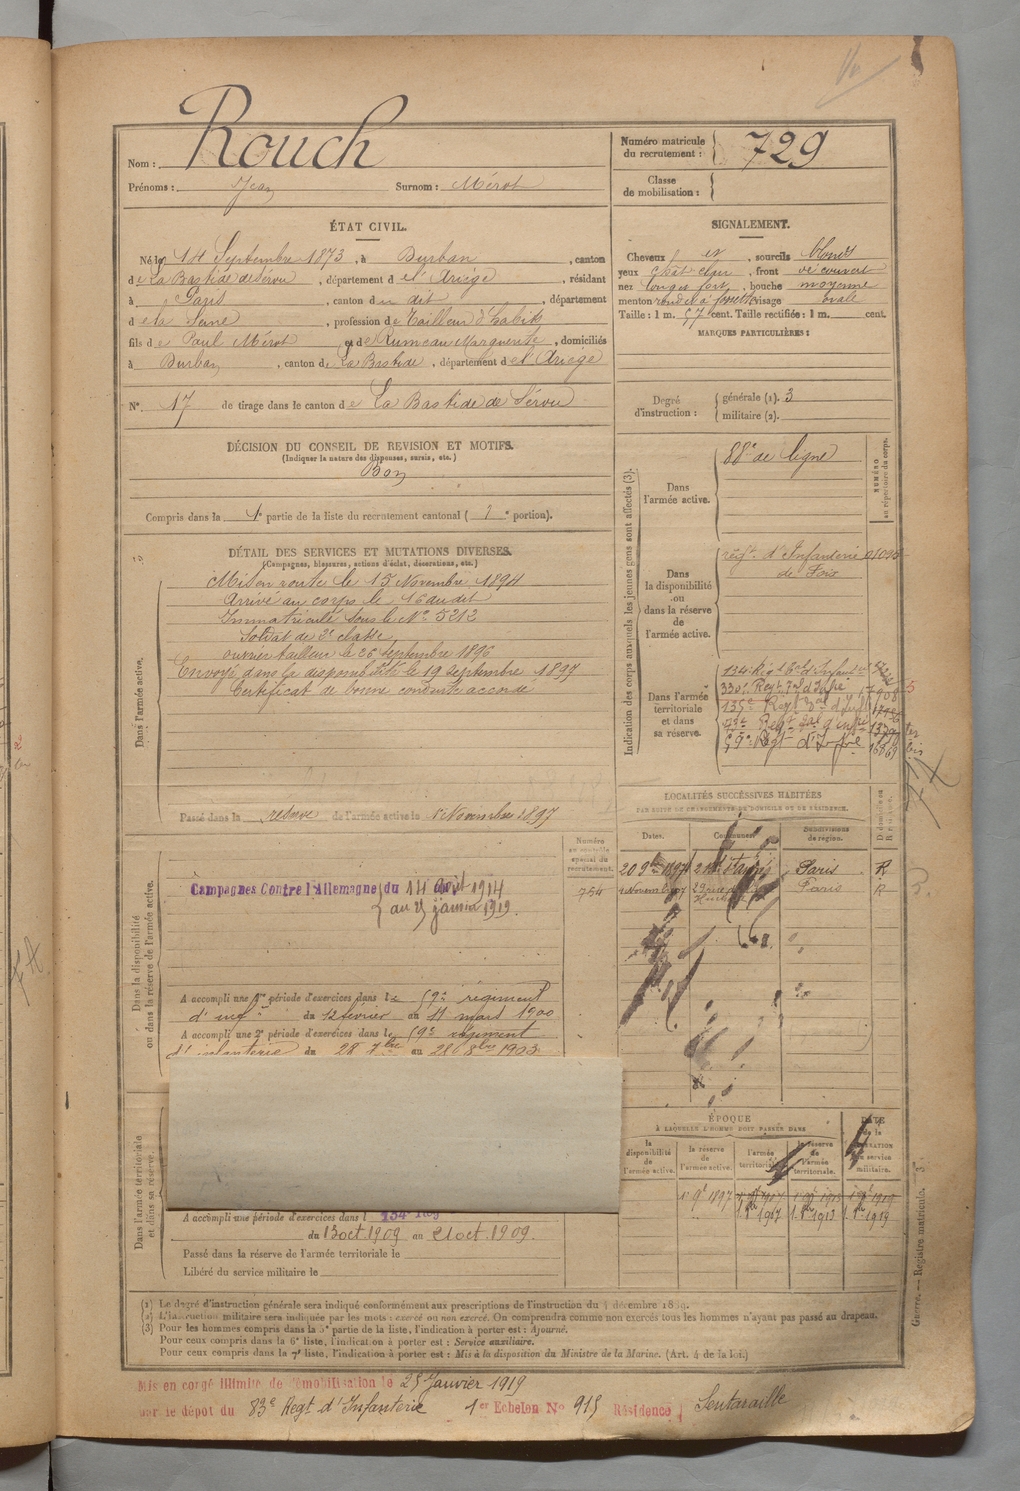 Nom : Rouch
Prénoms : Jean Surnom : Mérot
Numéro matricule du recrutement : 729
Classe de mobilisation :
ÉTAT CIVIL.
Né le 14 Septembre 1873, à Durban, canton
de La Bastide de Sérou, département de l'Ariège, résidant
à Paris, canton du dit, département
de la Seine, profession de Tailleur d'habits
fils de Paul Mérot et de Rumeau Marguerite, domiciliés
à Durban, canton de La Bastide, département de l'Ariège
N° 17 de tirage dans le canton de La Bastide de Sérou
SIGNALEMENT.
Cheveux et sourcils blonds
yeux chât clair, front découvert
nez long et fort, bouche moyenne
menton rond et à fossette visage ovale
Taille : 1 m. 57 cent. Taille rectifiée : 1 m. cent.
MARQUES PARTICULIÈRES :
Degré d'instruction : générale (1). 3
militaire (2).
DÉCISION DU CONSEIL DE REVISION ET MOTIFS.
(Indiquer la nature des dispenses, sursis, etc.)
Bon
Compris dans la 1e partie de la liste du recrutement cantonal ( e portion).
DÉTAIL DES SERVICES ET MUTATIONS DIVERSES.
(Campagnes, blessures, actions d'éclat, décorations, etc.)
Dans l'armée active.
Mis en route le 15 Novembre 1894
Arrivé au corps le 16 du dit
Immatriculé sous le N° 5212
Soldat de 2e classe
ouvrier tailleur le 26 septembre 1896
Envoyé dans la disponibilité le 19 Septembre 1897
Certificat de bonne conduite accordé
Passé dans la réserve de l'armée active le 1 Novembre 1897
Indication des corps auxquels les jeunes gens sont affectés (3).
NUMÉRO au répertoire du corps.
Dans l'armée active.
88e de ligne
Dans la disponibilité ou dans la réserve de l'armée active.
régt. d'Infanterie
de Foix
Dans l'armée territoriale et dans sa réserve.
134e Régt
330e Regt
135e Regt
59e Régt d'Infrie
LOCALITÉS SUCCESSIVES HABITÉES
PAR SUITE DE CHANGEMENTS DE DOMICILE OU DE RÉSIDENCE.
Dates. Communes. Subdivisions de région. D domicile ou R résidence.
20 9bre 1897 Paris R
Paris R
Dans la disponibilité ou dans la réserve de l'armée active.
Numéro au contrôle spécial du recrutement.
754
Campagnes Contre l'Allemagne du 14 août 1914
au 25 janvier 1919.
A accompli une 1re période d'exercices dans le 59e régiment
d'inf du 12 février au 11 mars 1900
A accompli une 2e période d'exercices dans le 59e régiment
d'infanterie du 28 7bre au 8bre 1903
Dans l'armée territoriale et dans sa réserve.
A accompli une période d'exercices dans l 134e Reg
du 13 oct 1909 au 21 oct. 1909.
Passé dans la réserve de l'armée territoriale le
Libéré du service militaire le
ÉPOQUE
À LAQUELLE L'HOMME DOIT PASSER DANS
la disponibilité de l'armée active. la réserve de l'armée active. l'armée territoriale. la réserve de l'armée territoriale. DATE de la LIBÉRATION du service militaire.
1r 9e 1897
(1) Le degré d'instruction générale sera indiqué conformément aux prescriptions de l'instruction du 4 décembre 1889.
(2) L'instruction militaire sera indiquée par les mots : exercé ou non exercé. On comprendra comme non exercés tous les hommes n'ayant pas passé au drapeau.
(3) Pour les hommes compris dans la 5e partie de la liste, l'indication à porter est : Ajourné.
Pour ceux compris dans la 6e liste, l'indication à porter est : Service auxiliaire.
Pour ceux compris dans la 7e liste, l'indication à porter est : Mis à la disposition du Ministre de la Marine. (Art. 4 de la loi.)
Guerre. — Registre matricule. 3
Mis en congé illimité de démobilisation le 25 Janvier 1919
par le dépôt du 83e Régt d'Infanterie 1er Echelon No 915 Résidence Sentaraille